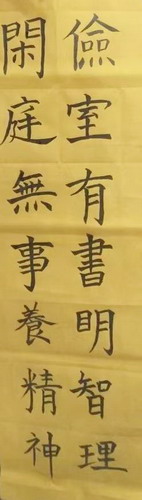 儉室有書明智理
閑庭無事養精神